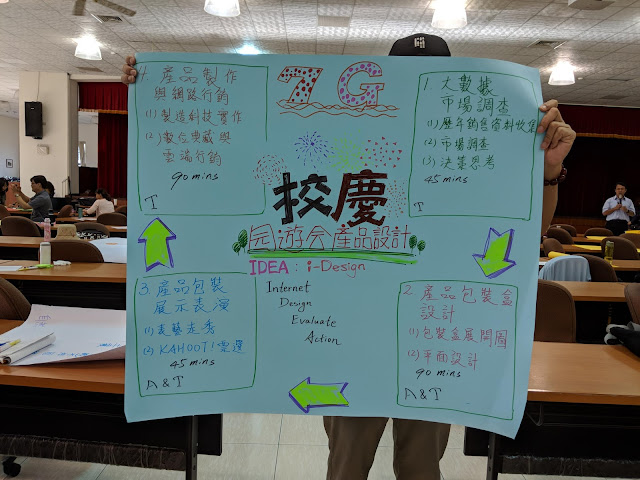 7G
校慶
园遊会產品設計
IDEA : i-Design
Internet
Design
Evaluate
Action
1. 大數據
市場調查
(1) 歷年銷售資料收集
(2) 市場調查
(3) 決策思考
45 mins
T
2. 產品包裝盒
設計
(1) 包裝盒展開圖
(2) 平面設計
90 mins
A & T
3. 產品包裝
展示表演
(1) 表藝走秀
(2) KAHOOT!票選
45 mins
A & T
4. 產品製作
與網路行銷
(1) 製造科技實作
(2) 數位典藏與
雲端行銷
90 mins
T